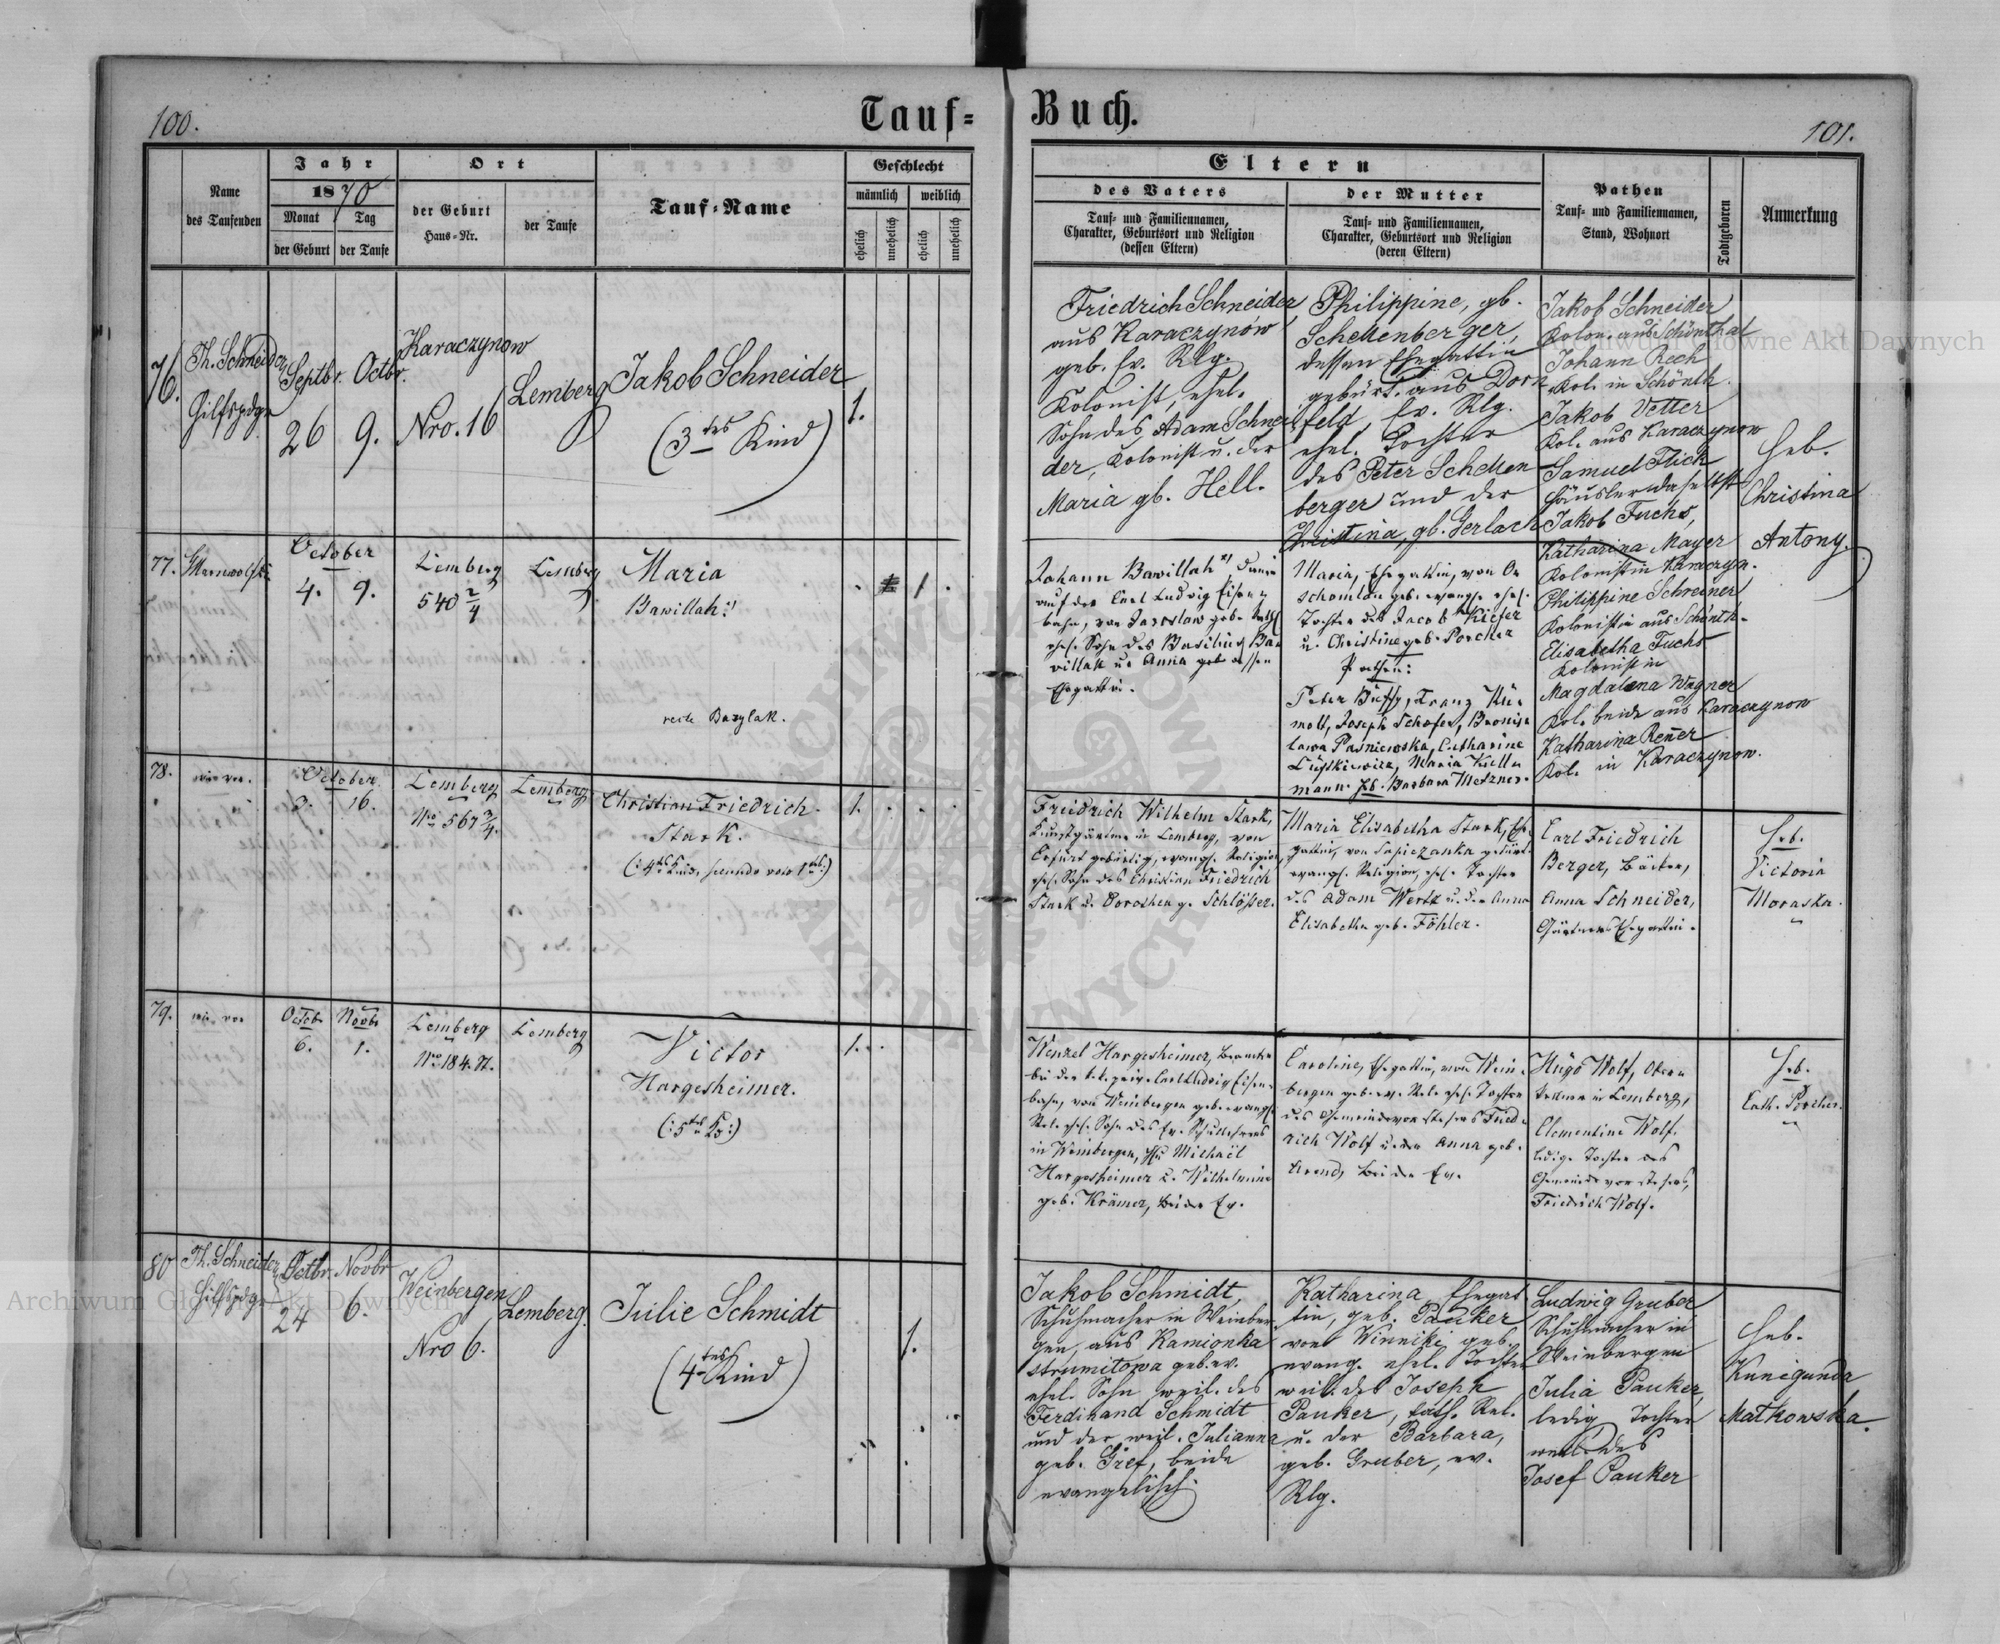 100.
Tauf=
Buch.
101.
Name
des Taufenden
Jahr
1870
Monat
Tag
der Geburt
der Taufe
Ort
der Geburt
Haus=Nr.
der Taufe
Tauf=Name
Geschlecht
männlich
weiblich
ehelich
unehelich
ehelich
unehelich
Eltern
des Vaters
Tauf= und Familiennamen,
Charakter, Geburtsort und Religion
(dessen Eltern)
der Mutter
Tauf= und Familiennamen,
Charakter, Geburtsort und Religion
(deren Eltern)
Pathen
Tauf= und Familiennamen,
Stand, Wohnort
Todtgeboren
Anmerkung
76.
Th. Schneider
Hilfspdgr
Septbr.
26
Octbr.
9.
Karaczynow
Nro. 16
Lemberg
Jakob Schneider
(3tes Kind)
1.
Friedrich Schneider
aus Karaczynów
geb. Ev. Rlg.
Kolonist, ehel.
Sohn des Adam Schnei
der, Kolonist u. der
Maria gb. Hell.
Philippine, gb.
Schellenberger,
dessen Ehegattin
gebürt. aus Dorn
feld, Ev. Rlg.
ehel. Tochter
des Peter Schellen
berger und der
Christina, gb. Gerlach
Jakob Schneider
Kolon. aus Schönthal
Johann Rech
Kol. in Schönth.
Jakob Vetter
Kol. aus Karaczynow
Samuel Flick
Häusler daselbst
Jakob Fuchs,
Katharina Mayer
Kolonistin Karaczyn.
Philippine Schreiner
Kolonistin aus Schönth.
Elisabetha Fuchs
Kolonistin
Magdalena Wagner
Kol. beide aus Karaczynow
Katharina Renner
Kol. in Karaczynow.
Heb.
Christina
Antony.
77.
October
4.
9.
Lemberg
540 2/4
Lemberg
Maria
Bawillah
recte Bazylak.
1
Johann Bawillah
auf der Carl Ludwig Eisen
bahn, von Jaroslaw geb.
ehel. Sohn des Basilius Ba
willah u. Anna geb. dessen
Ehegattin.
Maria, Ehegattin, von
geb. evang. ehel.
Tochter des Jacob Kiefer
u. Christine geb. Porcher
Pathen:
Joseph Schafer, Bronis
lawa Pasniewska, Catharine
mann. Barbara Metzner.
78.
wie vor.
October
3.
16.
Lemberg
Nro 567 3/4.
Lemberg
Christian Friedrich
Stark.
1.
Freidrich Wilhelm Stark,
Kunstgärtner in Lemberg, von
Erfurt gebürtig, evangl. Religion,
ehel. Sohn des Christian Friedrich
Stark u. Dorothea g. Schlößer.
Maria Elisabetha Stark, Ehe
gattin, von Sapiezanka gebürt.
evangl. Religion, ehel. Tochter
des Adam Wertz u. der Anna
Elisabetha geb. Föhler.
Carl Friedrich
Berger, Bäcker,
Anna Schneider,
Gärtners Ehegattin.
Heb.
Victoria
Moraska.
79.
wie vor
Octob.
6.
Novbr
1.
Lemberg
Nro 184.
Lemberg
Victor
Hargesheimer.
(:5tes K:)
1.
Wenzel Hargesheimer, Beamter
bei der k.k. priv. Carl Ludwig Eisen
bahn, von Weinbergen geb. evangl.
Rel. ehel. Sohn des Ev. Schullehrers
in Weinbergen, Michael
Hargesheimer u. Wilhelmine
geb. Krämer, beide Ev.
Caroline, Ehegattin, von Wein
bergen geb. ev. Rel. ehel. Tochter
des Gemeindevorstehers Fried
rich Wolf u. der Anna geb.
Arend, beide Ev.
Hugo Wolf,
in Lemberg,
Clementine Wolf.
ledige Tochter des
Gemeindevorstehers,
Friedrich Wolf.
Heb.
Cath. Porcher.
80
Th. Schneider
Hilfspdgr
Octbr.
24
Novbr
6.
Weinbergen
Nro 6.
Lemberg.
Julie Schmidt
(4tes Kind)
1.
Jakob Schmidt,
Schuhmacher in Weinber
gen, aus Kamionka
strumitowa geb. ev.
ehel. Sohn weil. des
Ferdinand Schmidt
und der weil. Julianna
geb. Gref, beide
evangelisch.
Katharina, Ehegat
tin, geb. Pauker
von Winniki geb.
evang. ehel. Tochter
weil. des Joseph
Pauker, kath. Rel.
u. der Barbara,
geb. Gruber, ev.
Rlg.
Ludwig Gruber
Schuhmacher in
Weinbergen
Julia Pauker,
ledig Tochter
weil. des
Josef Pauker
Heb.
Kunigunda
Matkowska.
Archiwum Główne Akt Dawnych
Archiwum Główne Akt Dawnych